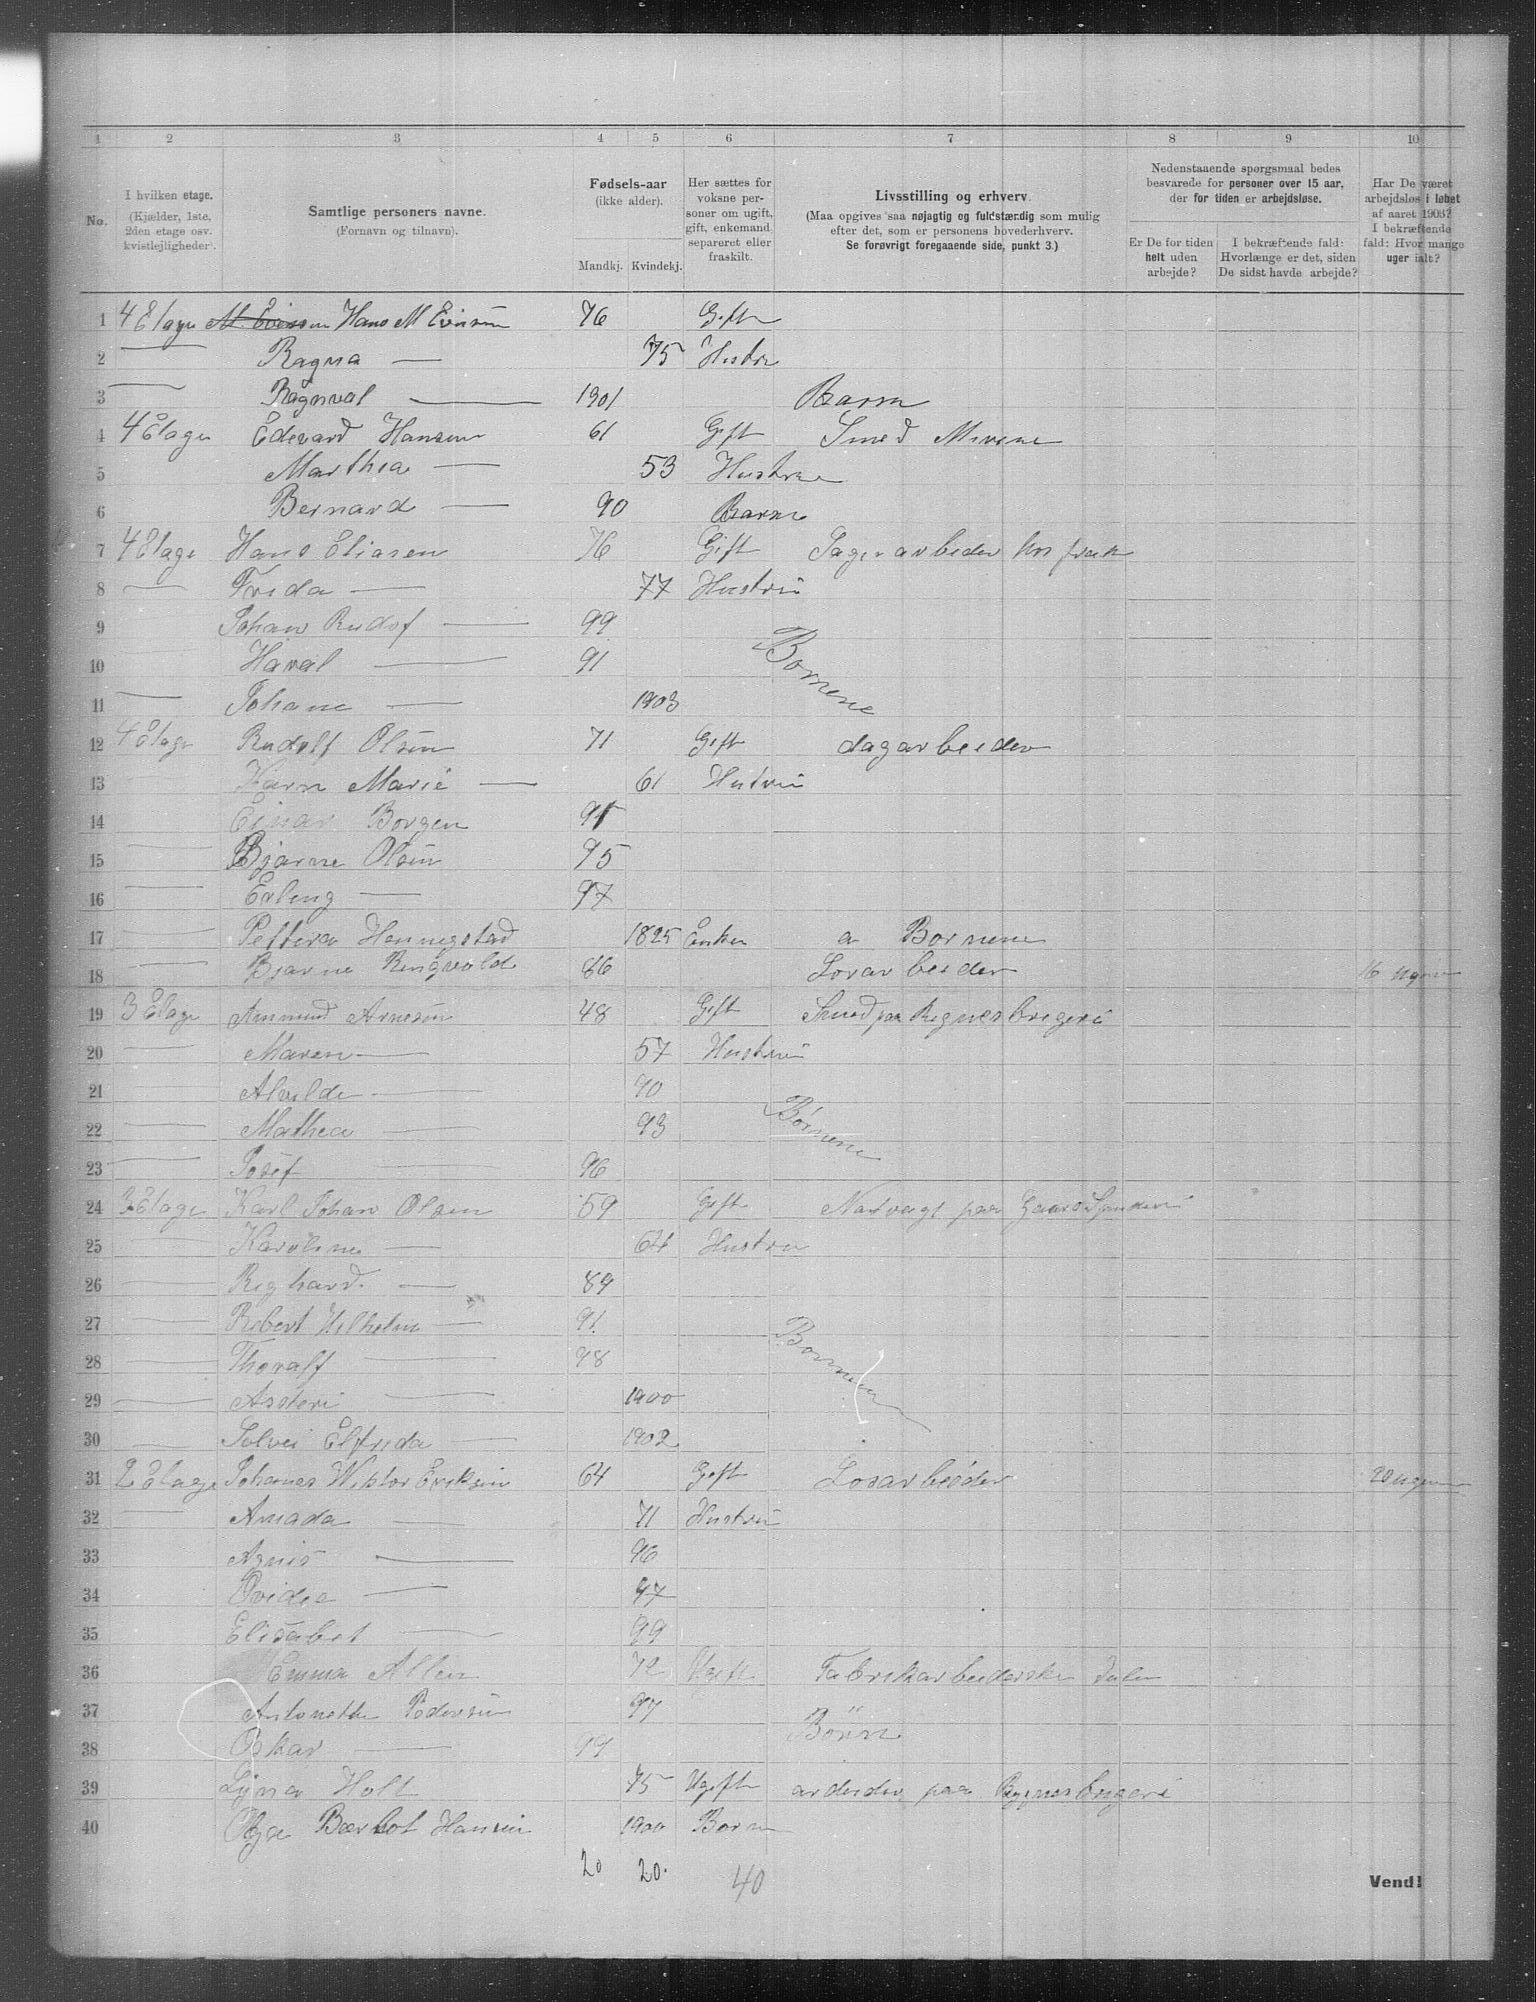 1 2 3 4 5 6 7 8 9 10
No.
I hvilken etage.
(Kjælder, 1ste,
2den etage osv.
kvistlejligheder.
Samtlige personers navne.
(Fornavn og tilnavn).
Fødsels-aar
(ikke alder).
Mandkj. Kvindekj.
Her sættes for
voksne per-
soner om ugift,
gift, enkemand,
separeret eller
fraskilt.
Livsstilling og erhverv.
(Maa opgives saa nøjagtig og fuldstændig som mulig
efter det, som er personens hovederhverv.
Se forøvrigt foregaaende side, punkt 3.)
Nedenstaaende spørgsmaal bedes
besvarede for personer over 15 aar,
der for tiden er arbejdsløse.
Er De for tiden
helt uden
arbejde?
I bekræftende fald:
Hvorlænge er det, siden
De sidst havde arbejde?
Har De været
arbejdsløs i løbet
af aaret 1903?
I bekræftende
fald: Hvor mange
uger ialt?
1 4 Etage Hans M 76 Gift
2 — Ragna — 75 Hustru
3 — Ragnval — 1901 Barn
4 4 Etage Edevard Hansen 61 Gift Smed
5 Marthea — 53 Hustru
6 Bernard — 90 Barn
7 4 Etage Hans Eliasen 76 Gift
8 — Frida — 77 Hustru
9 Johan Rudof — 99
10 Haral — 91 Bornene
11 — Johane — 1903
12 4 Etage Rudolf Olsen 71 Gift dagarbeider
13 Karn Marie — 61 Hustru
14 Einar Borgen 91
15 — Bjarne Olsen 95
16 — Erling — 97
17 — Pettera Hennigstad 1825 Enke a Bornene
18 — Bjarne Ringvold 86 Losarbeider 16 uger
19 3 Etage Ammund Arnesen 48 Gift Smed paa
20 — Maren — 57 Hustru
21 — Alvilde — 90
22 — Mathea — 93 Börnene
23 — Josef — 96
24 3 Etage Karl Johan Olsen 59 Gift Natvagt paa
25 — Karoline — 64 Hustru
26 — Righard — 89
27 — Robert Vilhelm — 91
28 — Thoralf — 98 Bornene
29 — Asteri — 1900
30 — Solvei Elfrida — 1902
31 2 Etage Johanes Wiktor Eriksen 64 Gift Losarbeider 20 uger
32 — Amada — 71 Hustru
33 Agnis — 96
34 Ovidie — 97
35 Elisabet — 99
36 Emma Allen 72 Ugift Fabrikarbeiderske
37 Antonette Pedersen 97
38 Oskar — 99 Börn
39 Lyna Holt 75 Ugift arbeider paa
40 Olga Hansen 1900 Born
20 20. 40
Vend!